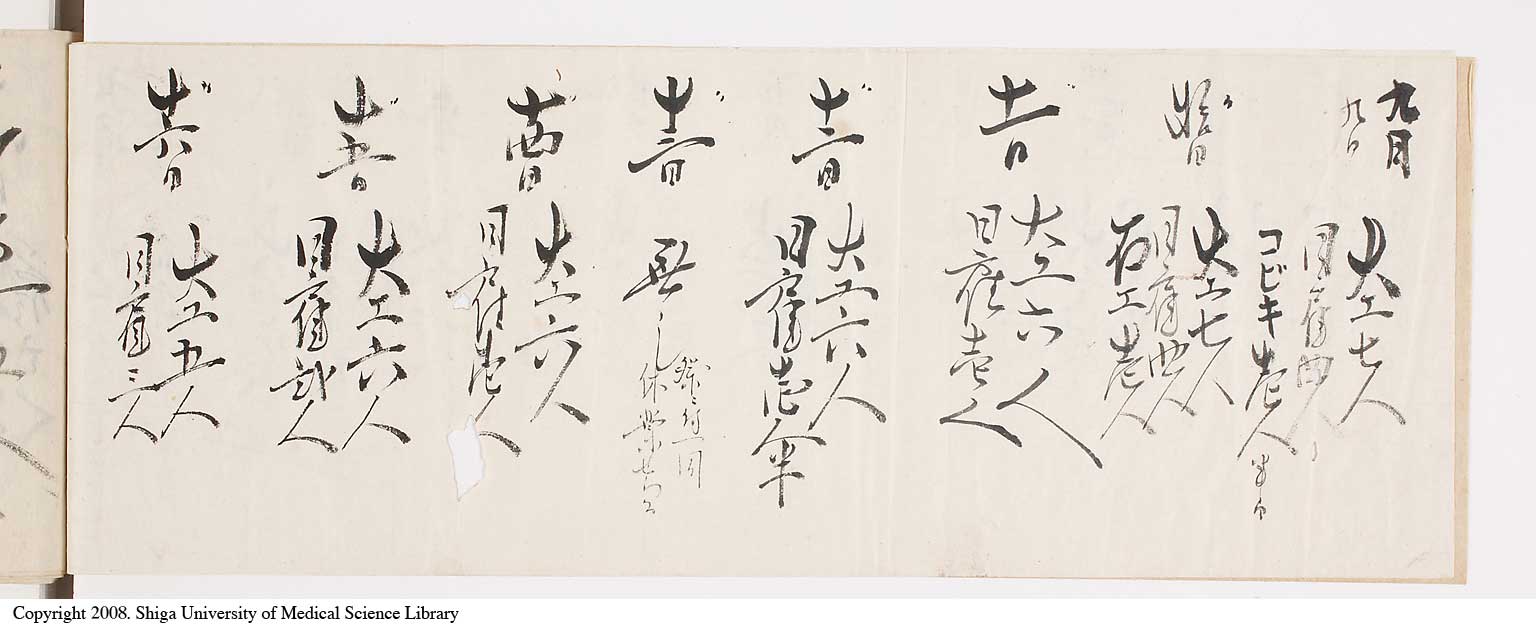 九月
九日
大工七人
同雇四人
コビキ壱人半日
〃 十日
大工七人
同雇四人
石工壱人
〃 十一日
大工六人
日雇壱人
〃 十二日
大工六人
日雇壱人半
〃 十三日
無之
休業
〃 十四日
大工六人
同雇壱人
〃 十五日
大工六人
同雇弐人
〃 十六日
大工五人
同雇三人
Copyright 2008. Shiga University of Medical Science Library